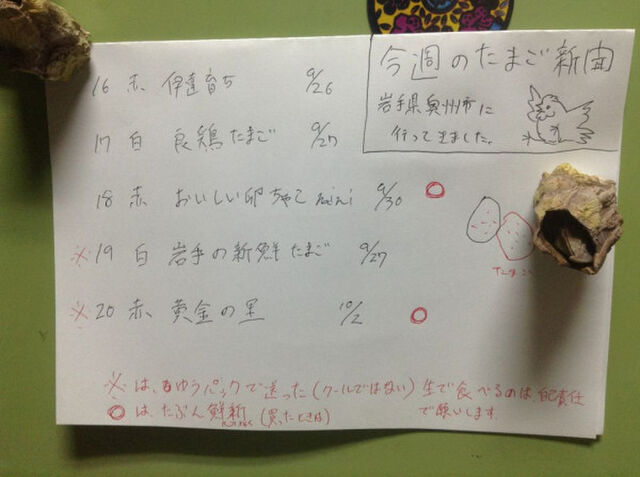 今週のたまご新聞
岩手県奥州市に
行ってきました。
16 赤 伊達育ち 9/26
17 白 良鶏たまご 9/27
18 赤 おいしい卵ちゃこ mini 9/30 ◎
※19 白 岩手の新鮮たまご 9/27
※20 赤 黄金の里 10/2 ◎
たまご
※は、ゆうパックで送った(クールではない)生で食べるのは、自己責任
で願いします。
◎は、たぶん新鮮 (買ったときは)